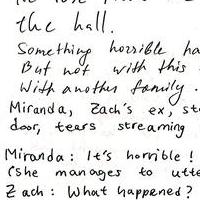 the hall.
Something horrible ha
But not with this
With another family.
Miranda, Zach's ex, st
door, tears streaming
Miranda: It's horrible!
(she manages to utte
Zach: What happened?